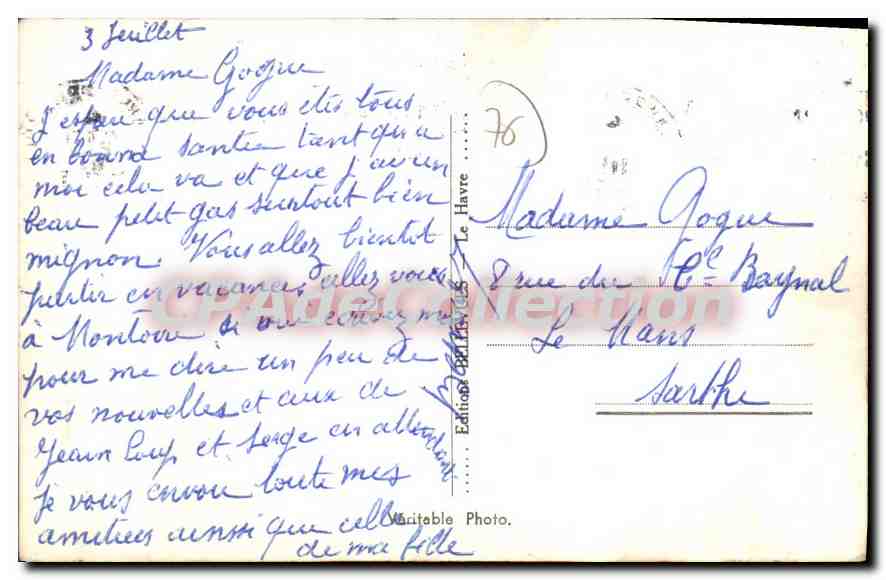 3 Juillet
Madame Gogue
J'espère que vous êtes tous
en bonne santée tant qu'a
moi cela va et que j'ai un
beau petit gas surtout bien
mignon. Vous allez bientot
partir en vacances, allez vous
à Montoire si vous
pour me dire un peu de
vos nouvelles et ceux de
Jean Loup et Serge en attendant
Je vous envoi toute mes
amitiées ainsi que celle
de ma fille
Editions BELLEVUES - Le Havre
Véritable Photo.
76
Madame Gogue
8 rue du Cc Baynal
Le Mans
Sarthe
CPAdeCollection